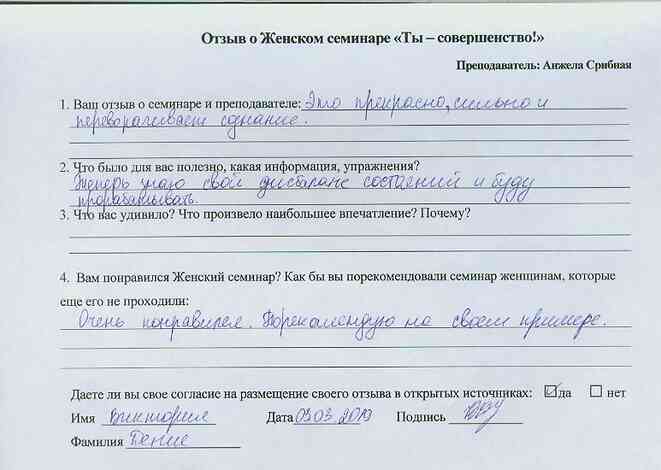 Отзыв о Женском семинаре «Ты – совершенство!»
Преподаватель: Анжела Срибная
1. Ваш отзыв о семинаре и преподавателе: Это прекрасно, сильно и
переворачивает сознание.
2. Что было для вас полезно, какая информация, упражнения?
Теперь знаю свой дисбаланс состояний и буду
прорабатывать.
3. Что вас удивило? Что произвело наибольшее впечатление? Почему?
4. Вам понравился Женский семинар? Как бы вы порекомендовали семинар женщинам, которые
еще его не проходили:
Очень понравился. Порекомендую на своем примере.
Даете ли вы свое согласие на размещение своего отзыва в открытых источниках: ☑ да ☐ нет
Имя Виктория Дата 03.03.2019 Подпись
Фамилия